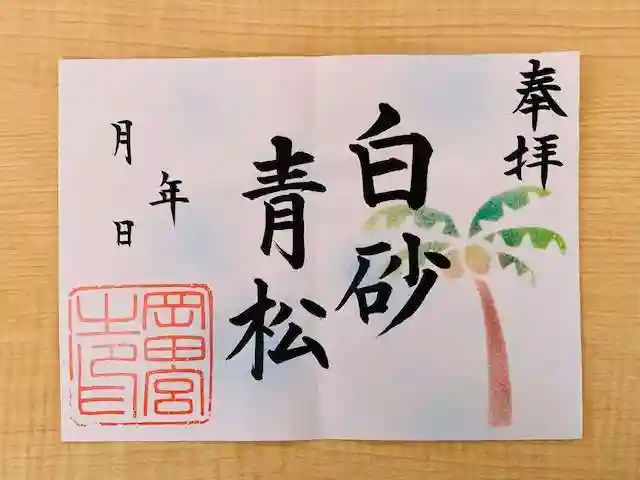 奉拝
白砂
青松
年
月
日
岡田宮
之印